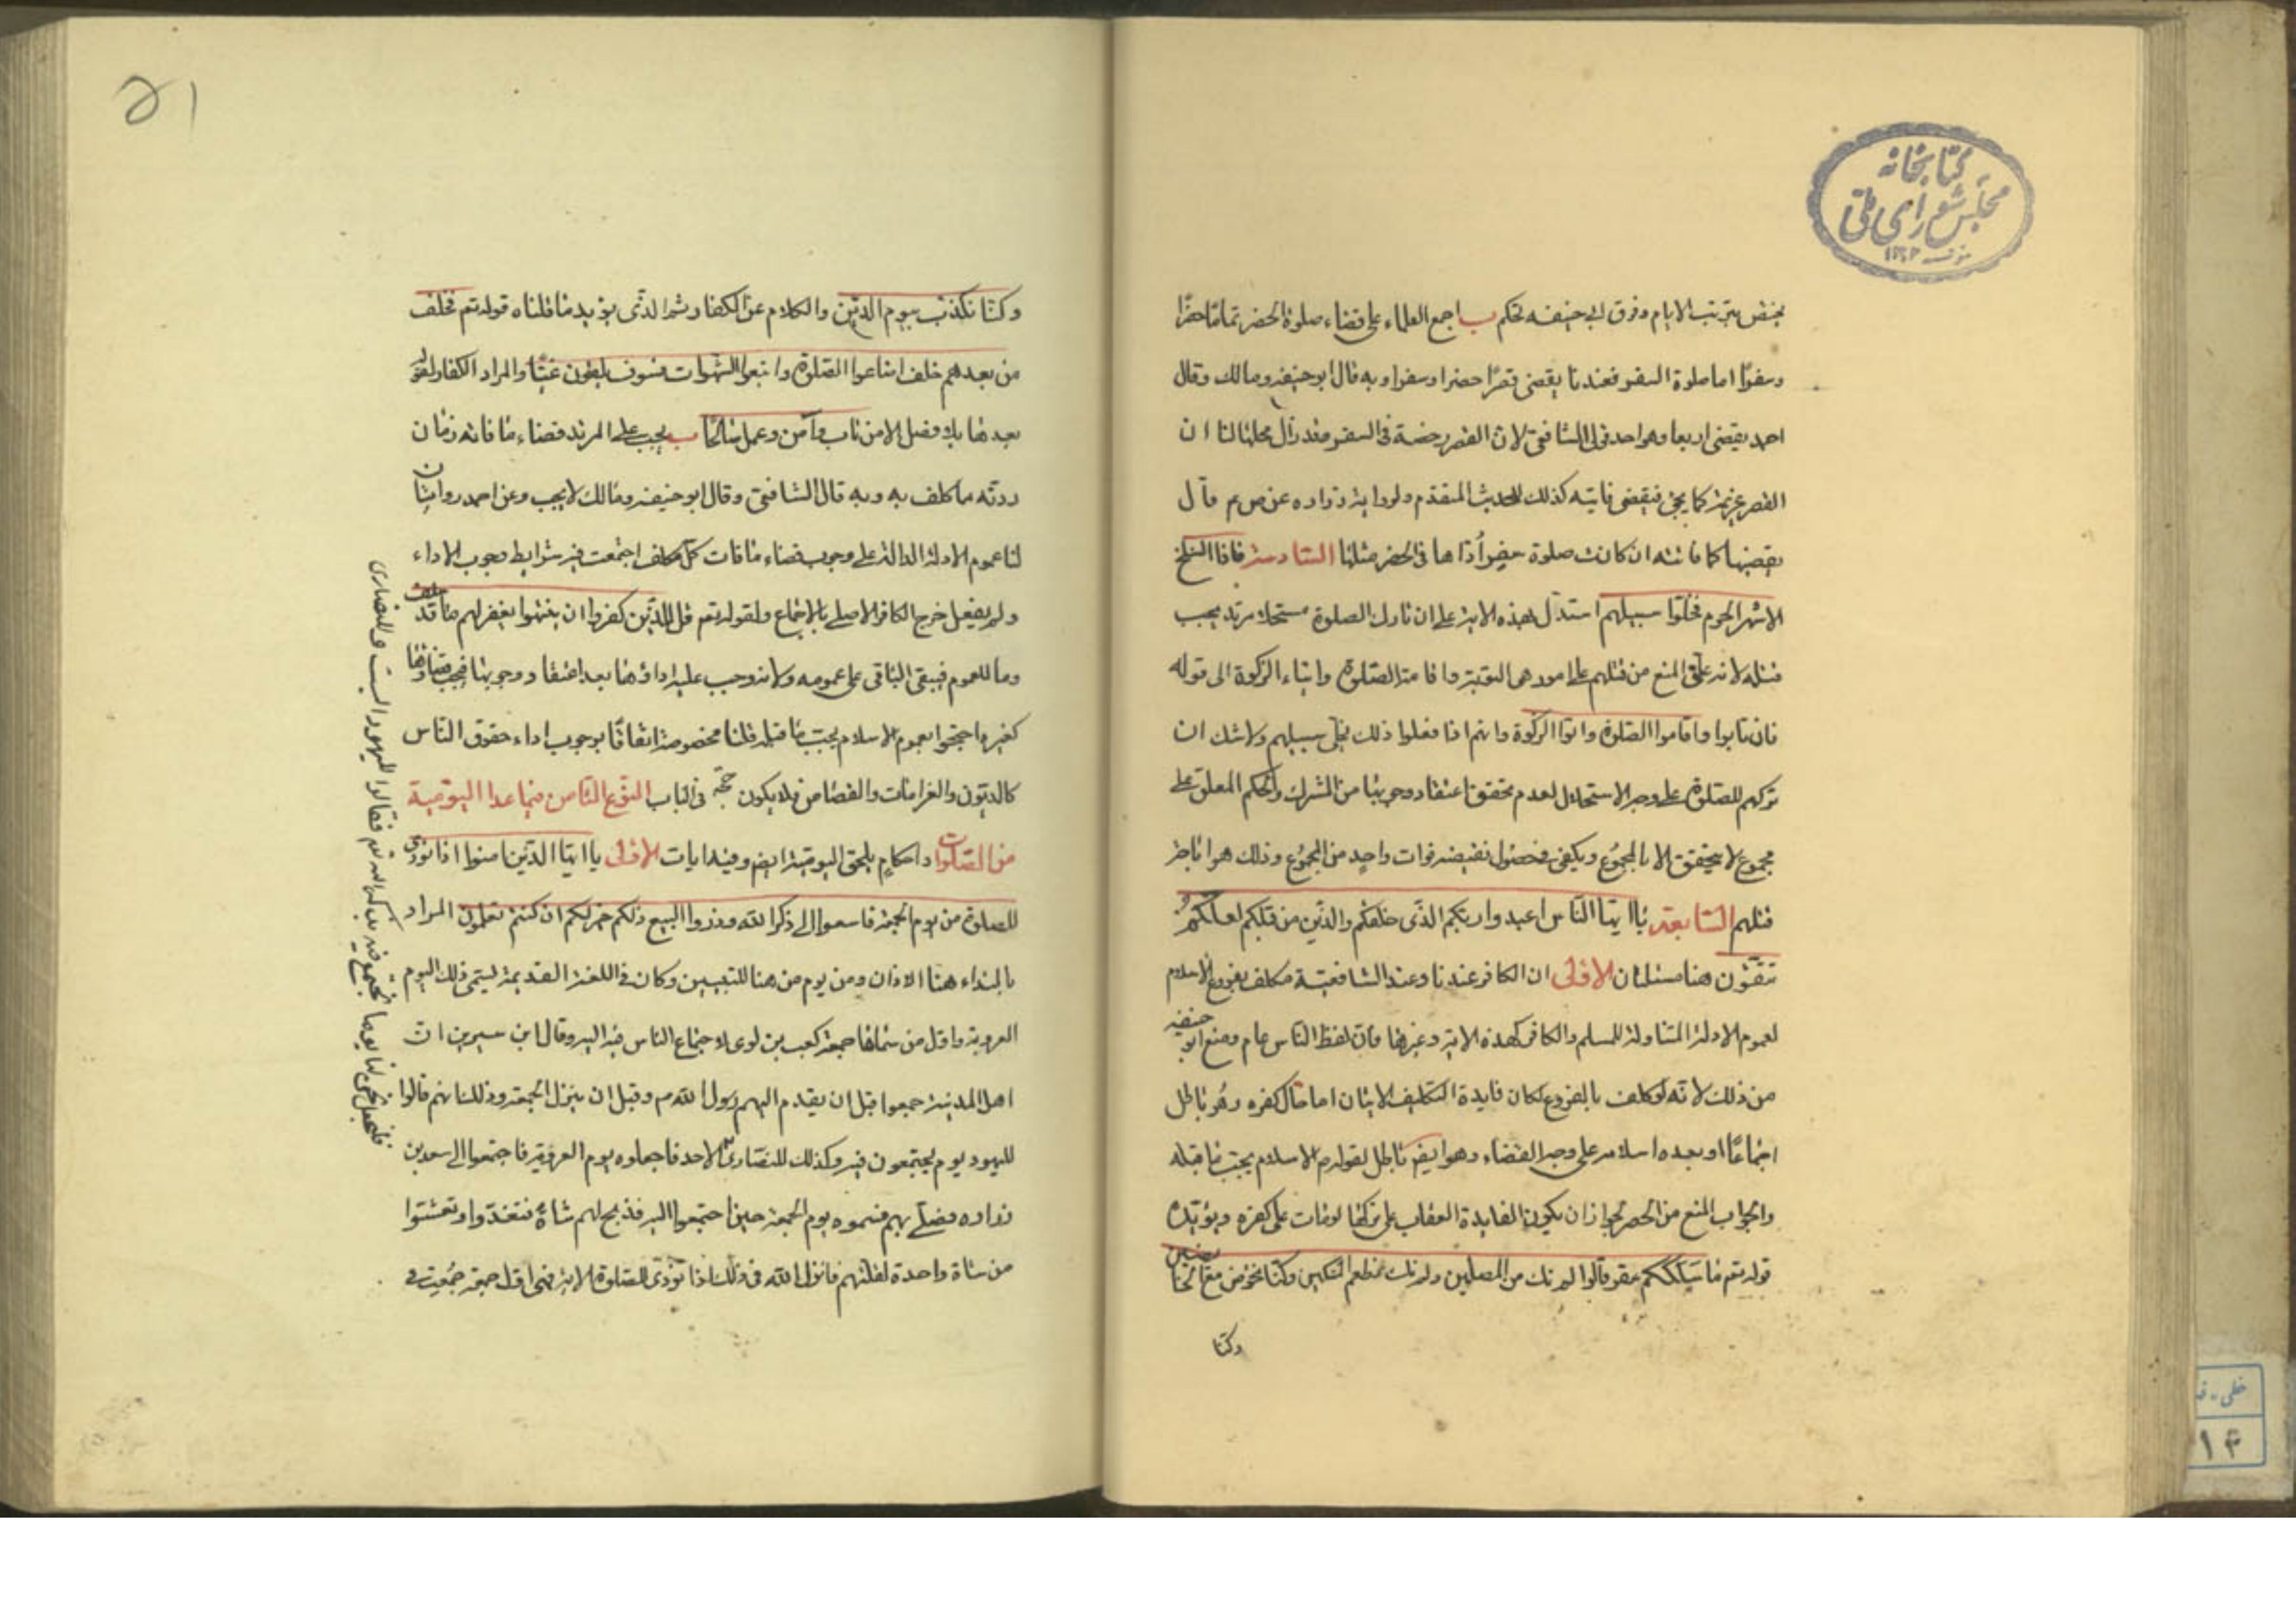 كتابخانه
مجلس شورای ملی
ینتقض بترتیب الایام وفرق ابی حنیفه تحکم ب اجمع العلماء علی قضاء صلوة الحضر تماما حضرًا
وسفرًا اما صلوة السفر فعندنا یقضی قصرًا حضرا وسفرا وبه قال ابو حنیفه ومالك وقال
احمد یقضی اربعا وهو احد قولی الشافعی لان القصر رخصة فی السفر وقد زال محلها لنا ان
القصر عزیمة كما یجیٔ فیقضی فایته كذلك للحدیث المتقدم ولروایة زراره عن ص م قال
یقضیها كما فاتته ان كانت صلوة سفر أداها فی الحضر مثلها السادسة فاذا انسلخ
الاشهر الحرم فخلوا سبیلهم استدل بهذه الایة علی ان تارك الصلوة مستحلا مرتد یجب
قتله لانه علق المنع من قتلهم علی امور هی التوبة واقامة الصلوة وایتاء الزكوة الی قوله
فان تابوا واقاموا الصلوة واتوا الزكوة وانهم اذا فعلوا ذلك یخلی سبیلهم ولا شك ان
تركهم للصلوة علی وجه الاستحلال لعدم تحقق اعتقاد وجوبها من المشرك والحكم المعلق علی
مجموع لا یتحقق الا بالمجموع ویكفی فی حصول نقیضه فوات واحد من المجموع وذلك هو اباحة
قتلهم السابعة یا ایها الناس اعبدوا ربكم الذی خلقكم والذین من قبلكم لعلكم
تتقون هنا مسئلتان الاولی ان الكافر عندنا وعند الشافعیة مكلف بفروع الاسلام
لعموم الادلة المتناولة للمسلم والكافر كهذه الایة وغیرها فان لفظ الناس عام ومنع ابو حنیفه
من ذلك لانه لو كلف بالفروع لكان فایدة التكلیف الاتیان اما حال كفره وهو باطل
اجماعًا او بعد اسلامه علی وجه القضاء وهو ایضا باطل لقوله م الاسلام یجب ما قبله
والجواب المنع من الحصر لجواز ان یكون الفایدة العقاب علی تركها لو مات علی كفره ویؤیده
قوله تعم ما سلككم فی سقر قالوا لم نك من المصلین ولم نك نطعم المسكین وكنا نخوض مع الخائضین
وكنا
۵۱
وكنا نكذب بیوم الدین والكلام عن الكفار وثم الذی یؤید ما قلناه قوله تعم فخلف
من بعدهم خلف اضاعوا الصلوة واتبعوا الشهوات فسوف یلقون غیًّا والمراد الكفار لقوله
بعدها بلا فصل الا من تاب وآمن وعمل صالحًا ب یجب علی المرتد قضاء ما فاته زمان
ردته ما كلف به وبه قال الشافعی وقال ابو حنیفه ومالك لا یجب وعن احمد روایتان
لنا عموم الادلة الدالة علی وجوب قضاء ما فات كل مكلف اجتمعت فیه شرایط وجوب الاداء
ولم یفعل خرج الكافر الاصلی بالاجماع ولقوله تعم قل للذین كفروا ان ینتهوا یغفر لهم ما قد سلف
وما للعموم فیبقی الباقی علی عمومه ولانه وجب علیه اداؤها بعد اعتقاد وجوبها فیجب قضاؤها
كغیره احتجوا بعموم الاسلام یجب ما قبله قلنا مخصوصة اتفاقًا بوجوب اداء حقوق الناس
كالدیون والغرامات والقصاص فلا یكون حجة فی الباب النوع الثامن فیما عدا الیومیة
من الصلوات واحكام یلحق الیومیة ایضا وفیه ایات الاولی یا ایها الذین امنوا اذا نودی
للصلوة من یوم الجمعة فاسعوا الی ذكر الله وذروا البیع ذلكم خیر لكم ان كنتم تعلمون المراد
بالنداء هنا الاذان ومن یوم من هنا للتبیین وكان فی اللغة القدیمة یسمی ذلك الیوم
العروبة واول من سماها جمعة كعب بن لوی لاجتماع الناس فیه الیه وقال ابن سیرین ان
اهل المدینة جمعوا قبل ان یقدم الیهم رسول الله م وقبل ان ینزل الجمعة وذلك انهم قالوا
للیهود یوم یجتمعون فیه وكذلك للنصاری الاحد فاجعلوه یوم العروبة فاجتمعوا الی سعد بن
زراره فصلی بهم فسموه یوم الجمعة حین اجتمعوا الیه فذبح لهم شاة فتغدوا وتعشوا
من شاة واحدة لقلتهم فانزل الله فی ذلك اذا نودی للصلوة الایة فهی اول جمعة جمعت فی
للیهود السبت وللنصاری